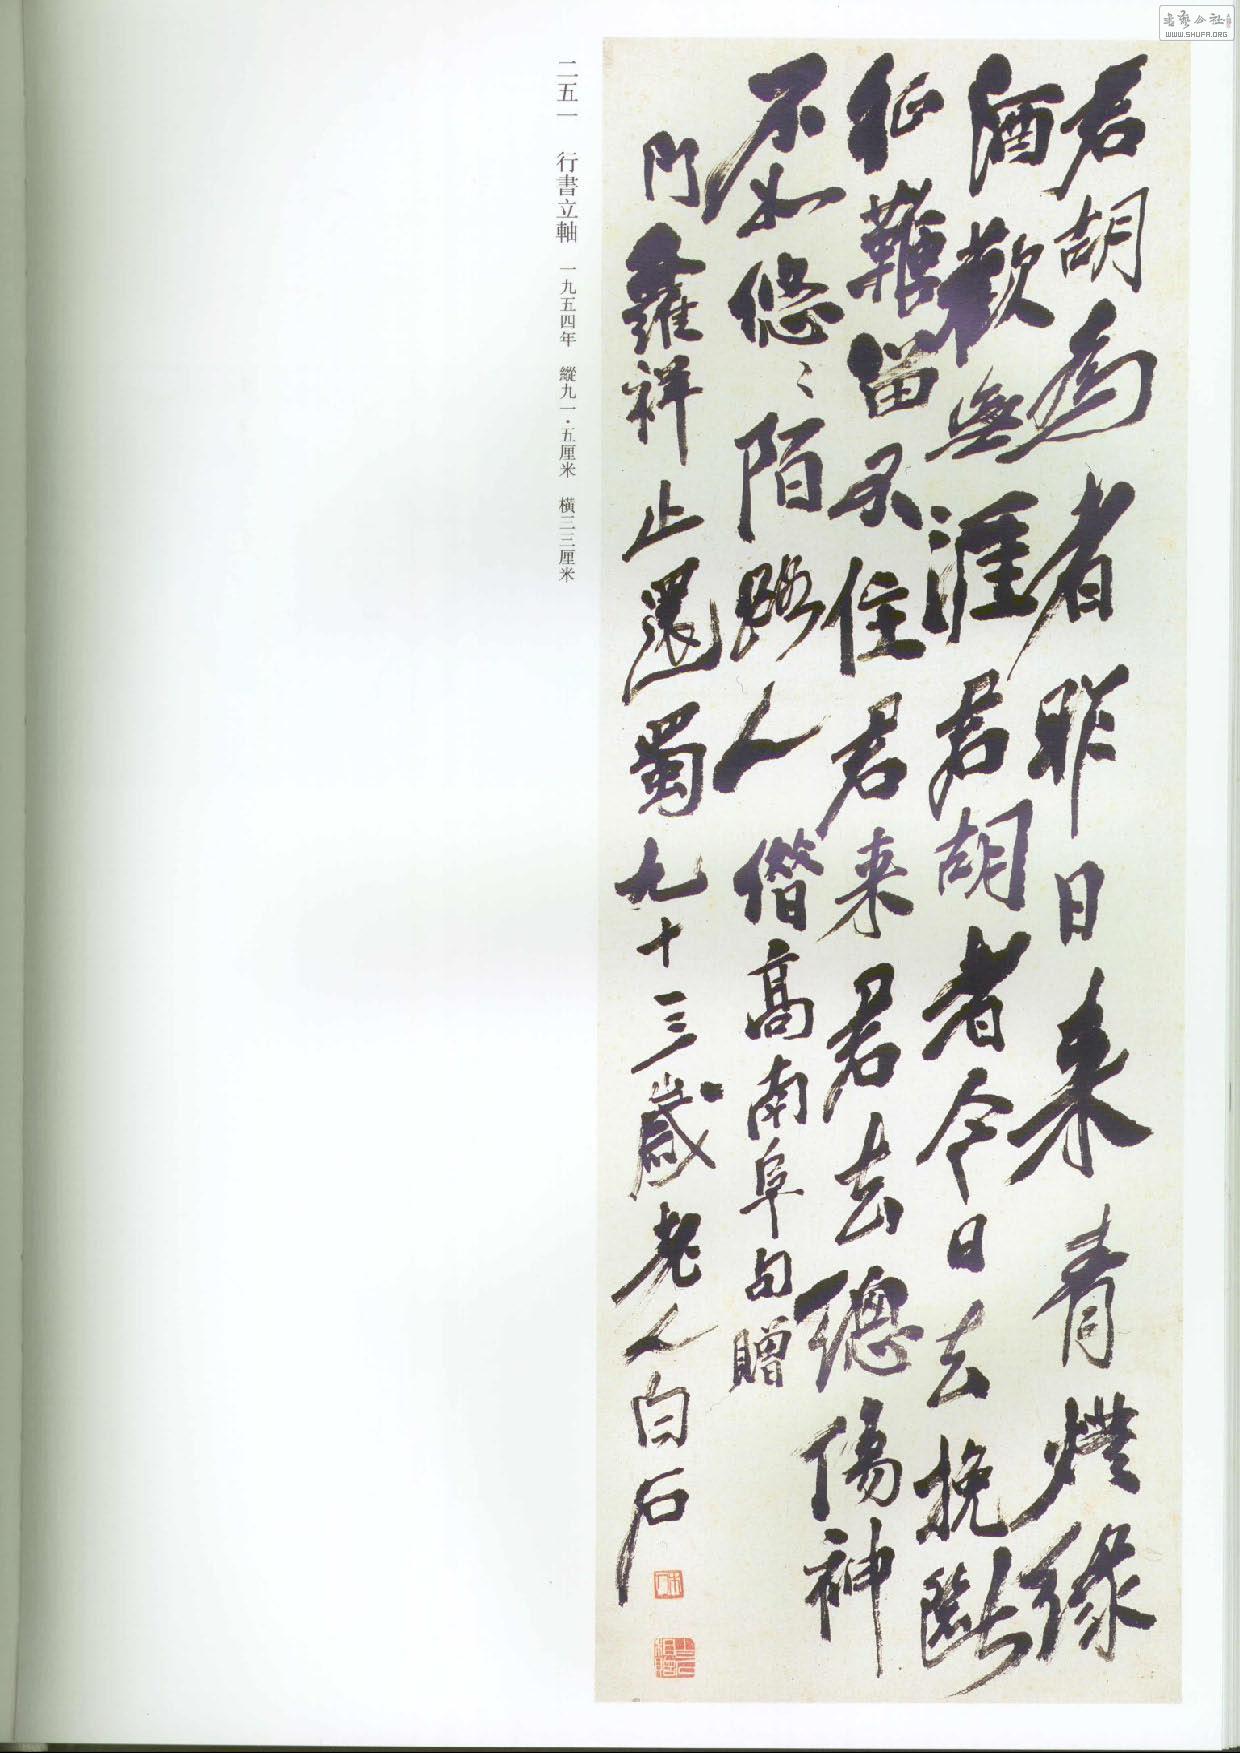 君胡為者昨日来青燈緑
酒歡無涯君胡者今日去挽斷
征鞭留不住君来君去總傷神
不如悠〻陌路人 借高南阜句贈
門羅祥止還蜀九十三歲老人白石
二五一 行書立軸 一九五四年 縱九一·五厘米 橫三三厘米
WWW.SHUFA.ORG